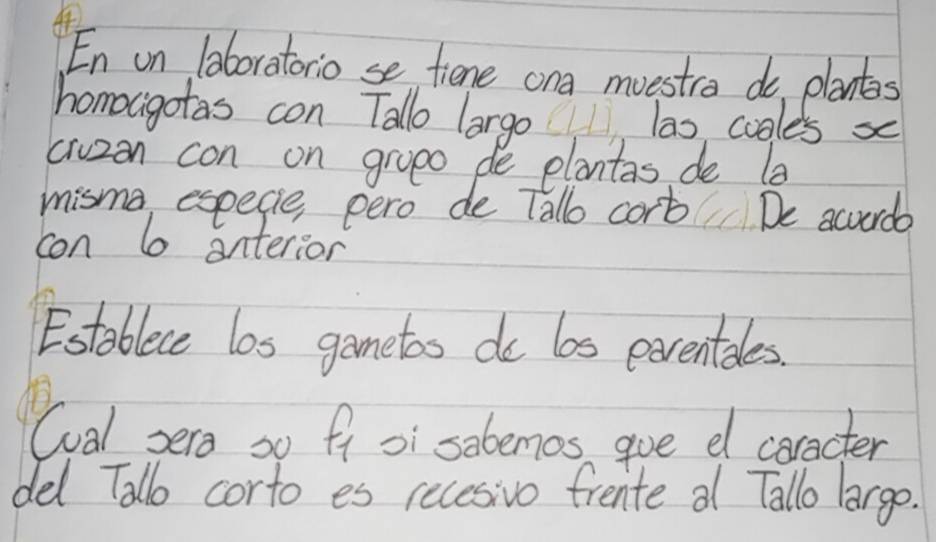 4
En un laboratorio se tiene una muestra de plantas
homocigotas con Tallo largo (LL), las cuales se
cruzan con un grupo de plantas de la
misma especie, pero de Tallo corto (cc). De acuerdo
con lo anterior
Establece los gametos de los parentales.
Cual sera su f1 si sabemos que el caracter
del Tallo corto es recesivo frente al Tallo largo.